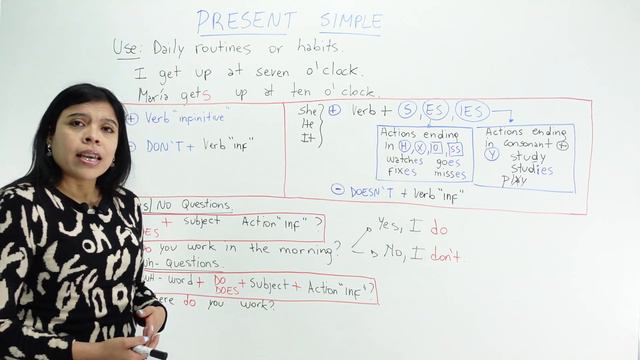 PRESENT SIMPLE
Use: Daily routines or habits.
I get up at seven o'clock.
María gets up at ten o'clock.
+ Verb "infinitive"
- DON'T + Verb "inf"
She
He
It
+ Verb + S, ES, IES
Actions ending
in H, X, O, SS
watches goes
fixes misses
Actions ending
in consonant +
Y study
studies
play
- DOESN'T + Verb "inf"
/No Questions.
+ subject Action "inf" ?
ES
you work in the morning?
Yes, I do
No, I don't.
- Questions
- word + DO + Subject + Action "inf"?
DOES
ere do you work?